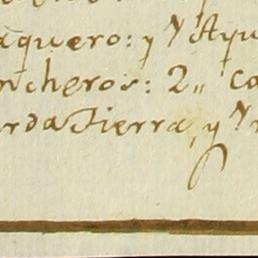 aquero: y Yr Ayu
ncheros: 2,, ca
arda Tierra, y Yr